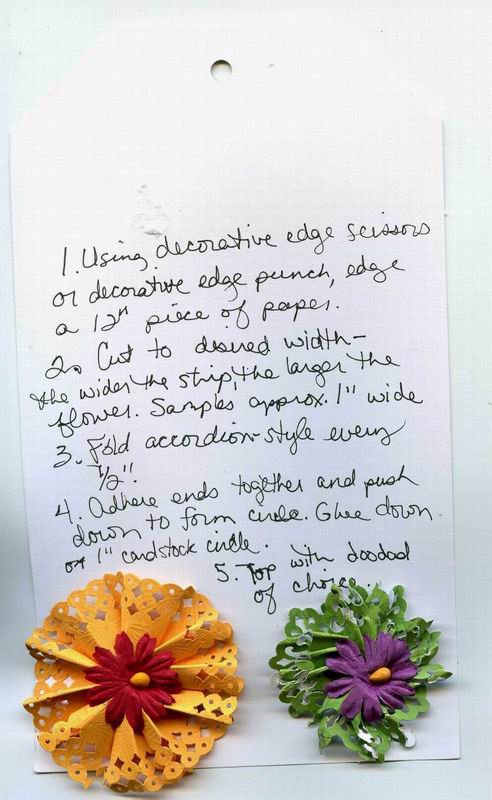 1. Using decorative edge scissors
or decorative edge punch, edge
a 12" piece of paper.
2. Cut to desired width-
the wider the strip, the larger the
flower. Samples approx. 1" wide
3. Fold accordion-style every
1/2".
4. Adhere ends together and push
down to form circle. Glue down
on 1" cardstock circle.
5. Top with doodad
of choice.